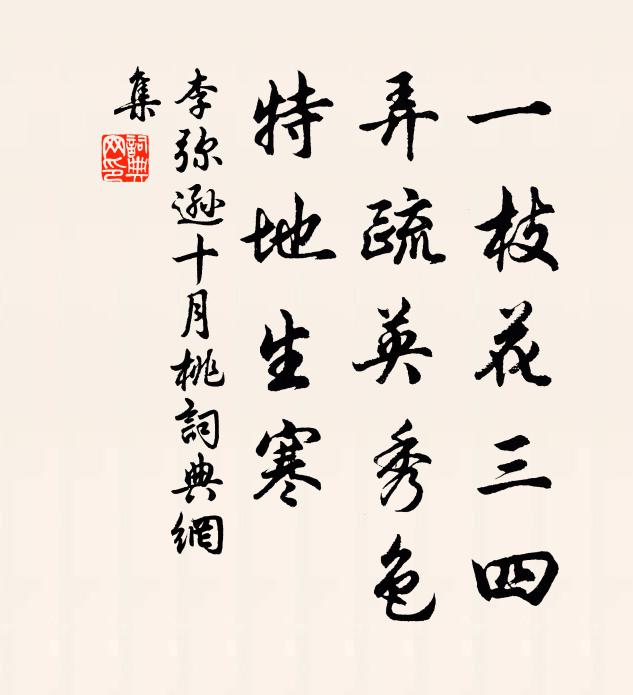 一枝花三四
弄疏英秀色
特地生寒
李弥逊十月桃詞典網
集
詞典
网印